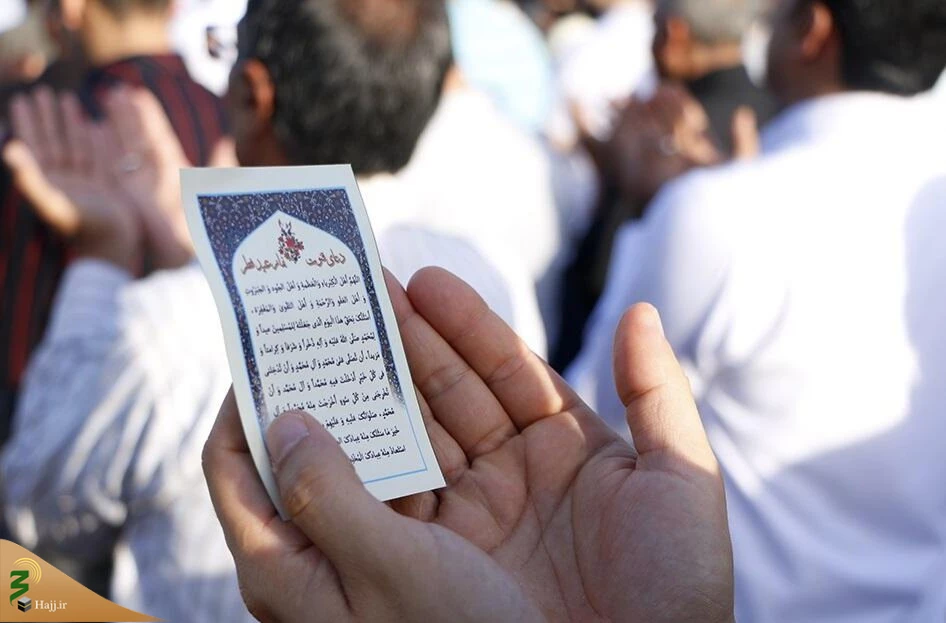 دعای قنوت نماز عید فطر
اللهم أهل الکبریاء والعظمة و أهل الجود و الجبروت
و أهل العفو والرحمة و أهل التقوی والمغفرة،
أسئلک بحق هذا الیوم الذی جعلته للمسلمین عیداً و
لمحمد صلی الله علیه و آله ذخراً و شرفاً و کرامتاً و
مزیداً، أن تصلی علی محمد و آل محمد و أن تدخلنی
فی کل خیر أدخلت فیه محمداً و آل محمد، و أن
تخرجنی من کل سوء أخرجت منه محمداً و آل
محمد، صلواتک علیه و علیهم
خیر ما سئلک منه عبادک
استعاذ منه عبادک
Hajj.ir